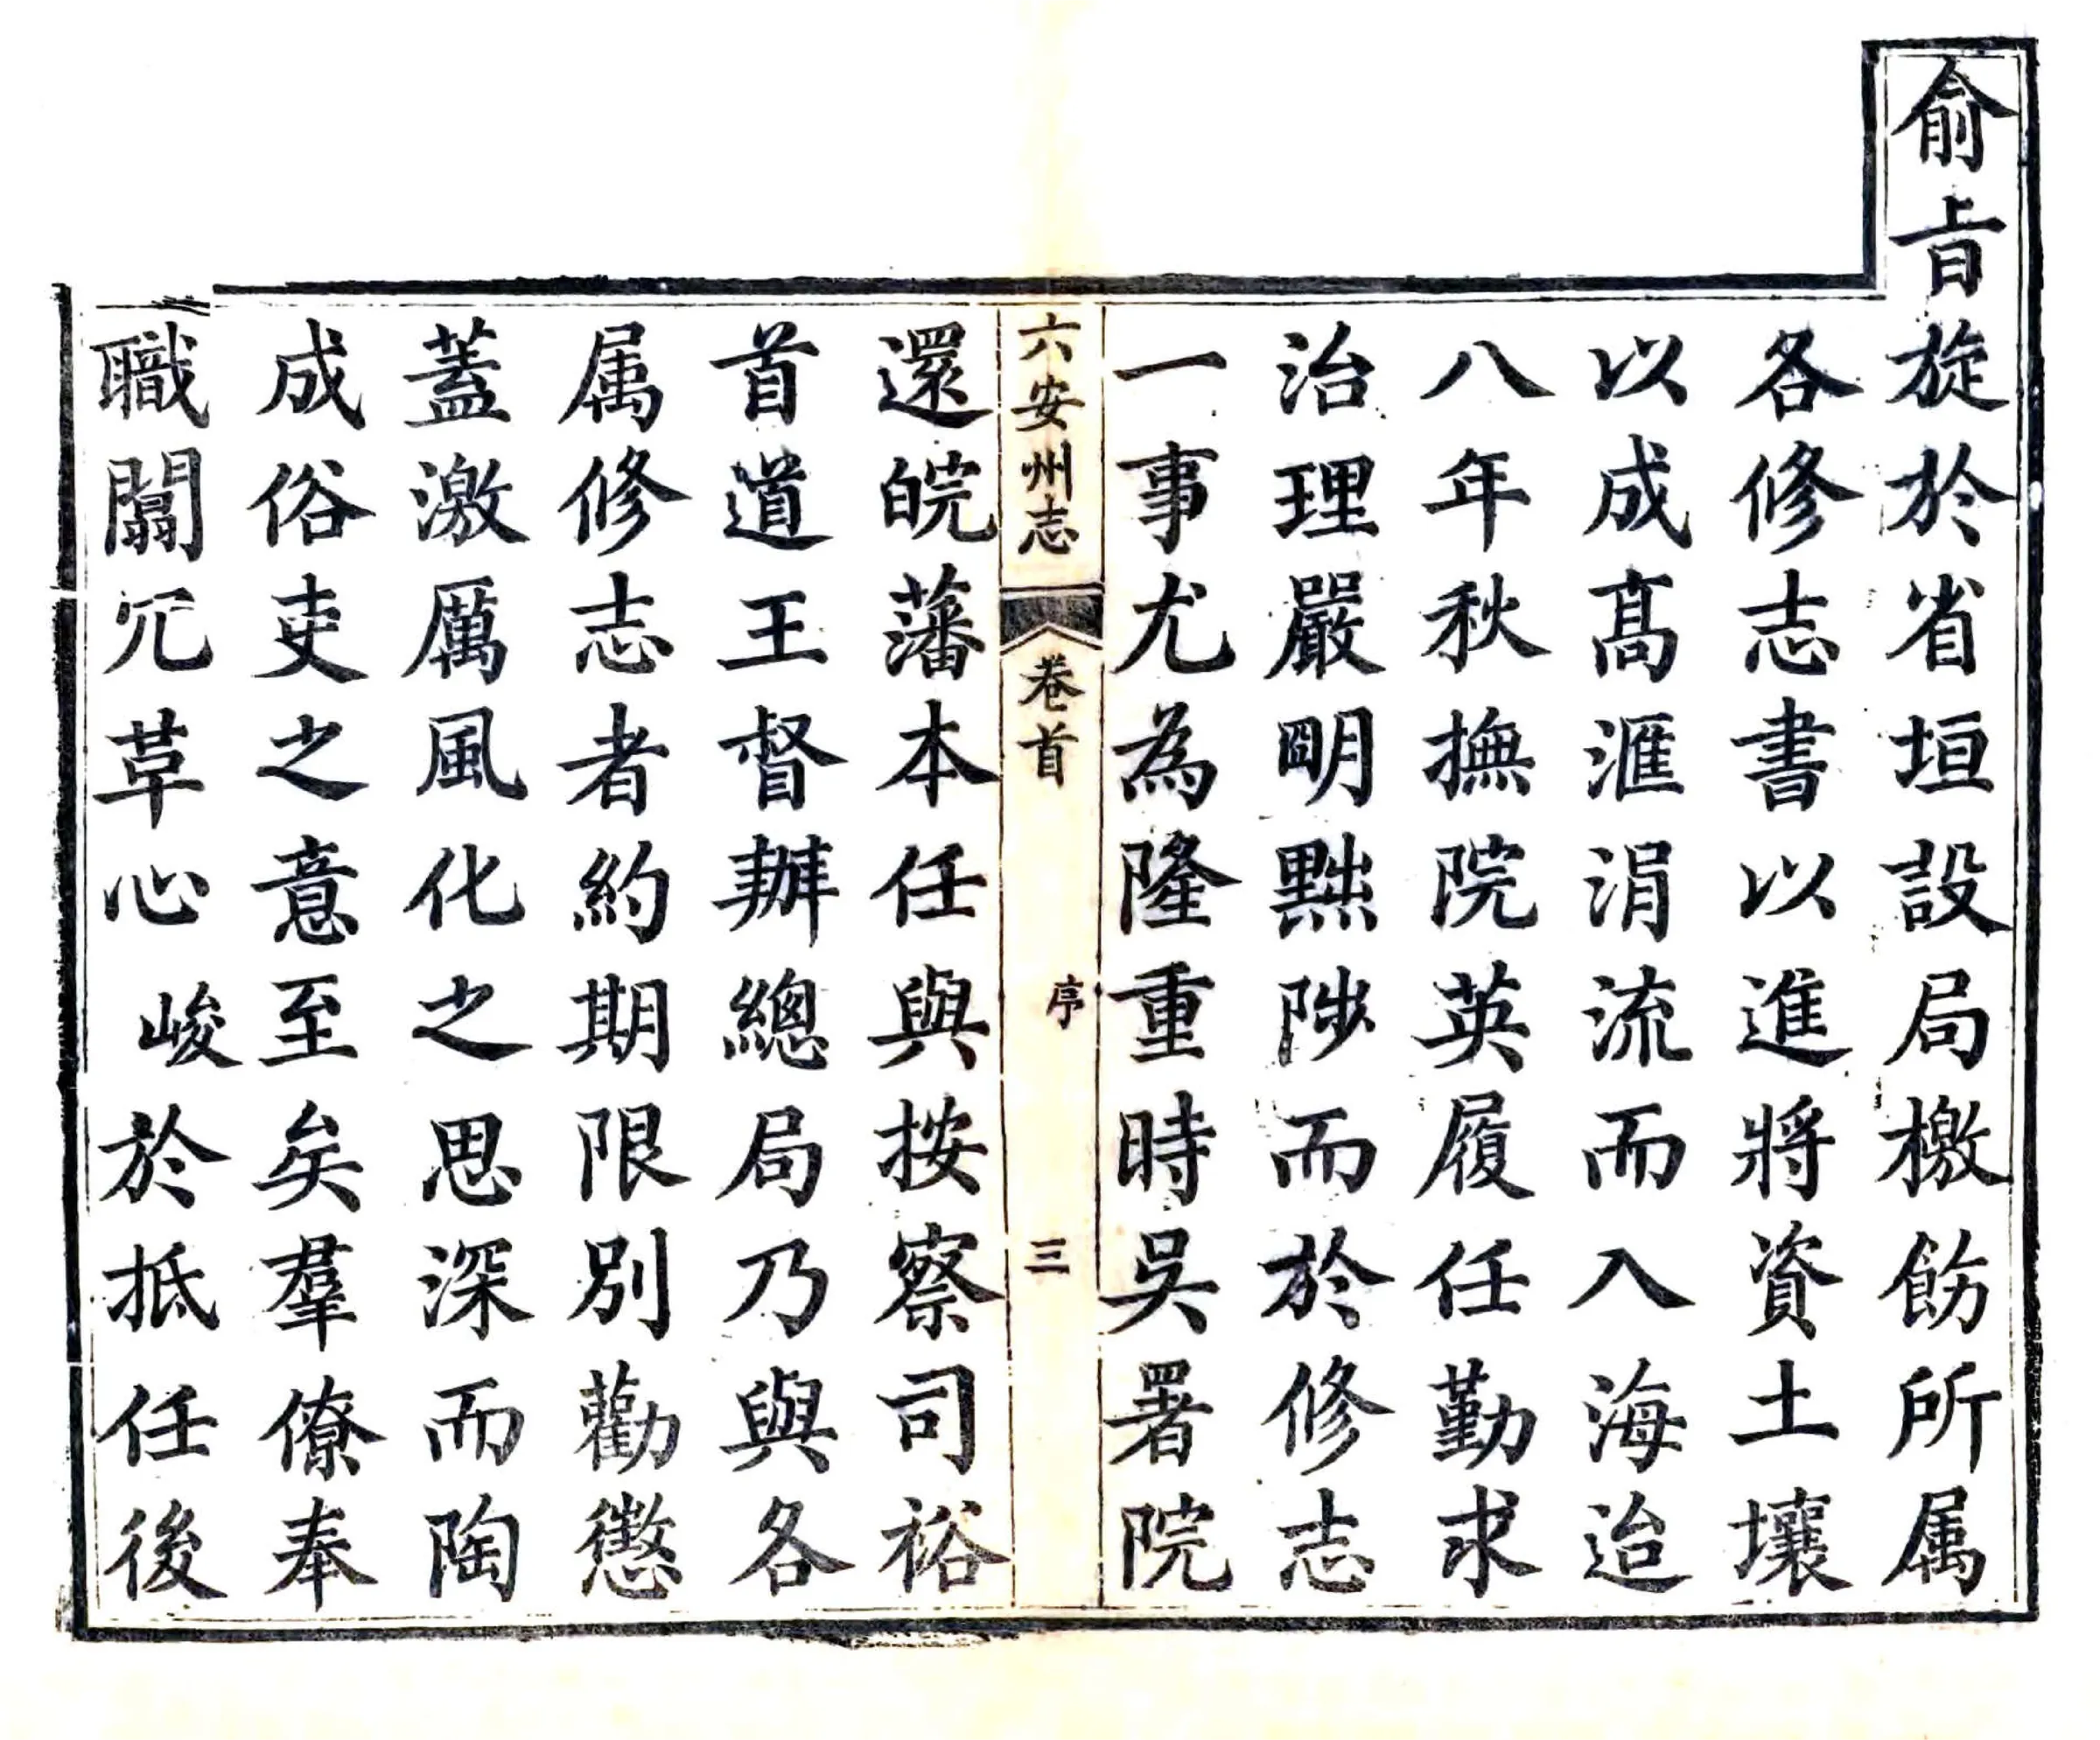 俞旨旋於省垣設局檄飭所属
各修志書以進將資土壤
以成髙滙涓流而入海迨
八年秋撫院英履任勤求
治理嚴明黜陟而於修志
一事尤為隆重時吳署院
六安州志 卷首 序 三
還皖藩本任與按察司裕
首道王督辦總局乃與各
属修志者約期限別勸懲
蓋激厲風化之思深而陶
成俗吏之意至矣羣僚奉
職闒冗草心峻於抵任後